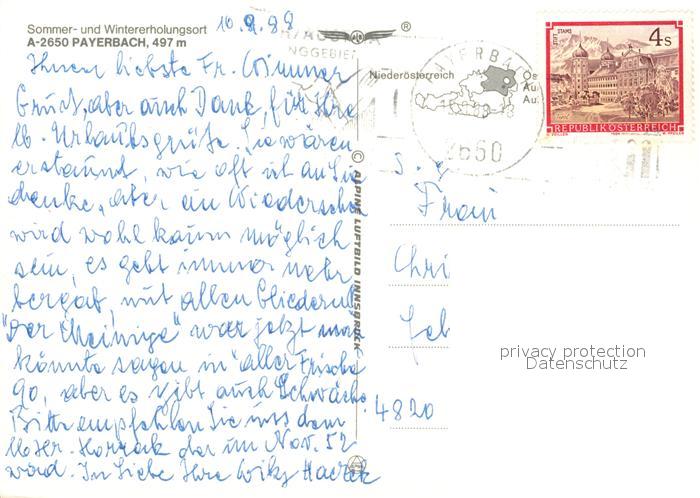 Sommer- und Wintererholungsort
A-2650 PAYERBACH, 497 m
10.9.88
Ihnen liebste Fr. Wimmer
Gruß, aber auch Dank, für Ihre
lb. Urlaubsgrüße. Sie wären
erstaunt, wie oft ich an Sie
denke, aber ein Wiedersehen
wird wohl kaum möglich
sein, es geht immer mehr
bergab, mit allen Gliedern.
"Der Meinige" war jetzt man
könnte sagen in "aller Frische"
90, aber es gibt auch Schwäche.
Bitte empfehlen Sie uns dem
der im Nov. 52
wird. In Liebe Ihre
Niederösterreich
PAYERBACH
2650
STIFT STAMS
4 S
REPUBLIK ÖSTERREICH
© ALPINE LUFTBILD INNSBRUCK
®
Frau
Chri
4820
privacy protection
Datenschutz